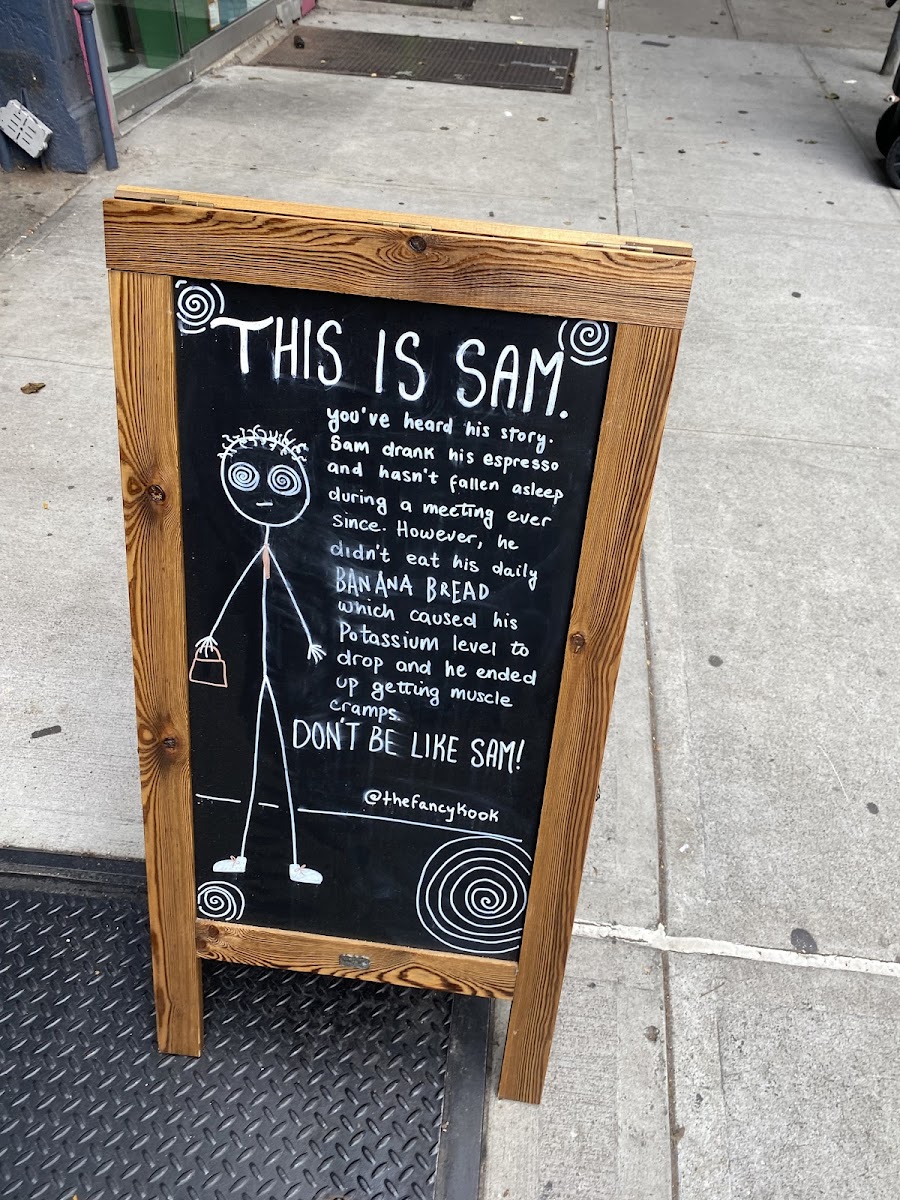 THIS IS SAM.
you've heard his story.
Sam drank his espresso
and hasn't fallen asleep
during a meeting ever
since. However, he
didn't eat his daily
BANANA BREAD
which caused his
Potassium level to
drop and he ended
up getting muscle
cramps.
DON'T BE LIKE SAM!
@thefancykook